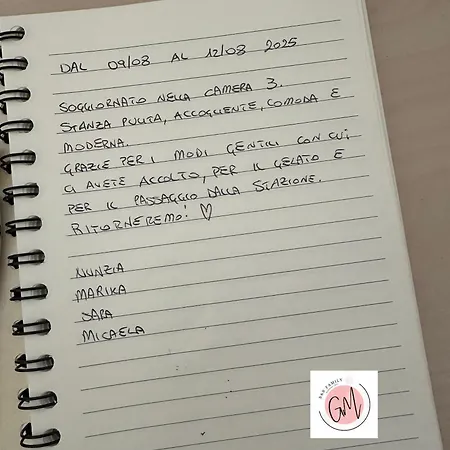 DAL 09/08 AL 12/08 2025
SOGGIORNATO NELLA CAMERA 3.
STANZA PULITA, ACCOGLIENTE, COMODA E
MODERNA.
GRAZIE PER I MODI GENTILI CON CUI
CI AVETE ACCOLTO, PER IL GELATO E
PER IL PASSAGGIO DALLA STAZIONE.
RITORNEREMO! ♡
NUNZIA
MARIKA
SARA
MICAELA
B&B FAMILY
GM